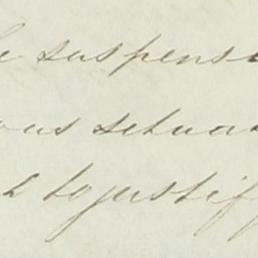 e suspens
ous situa
to justify